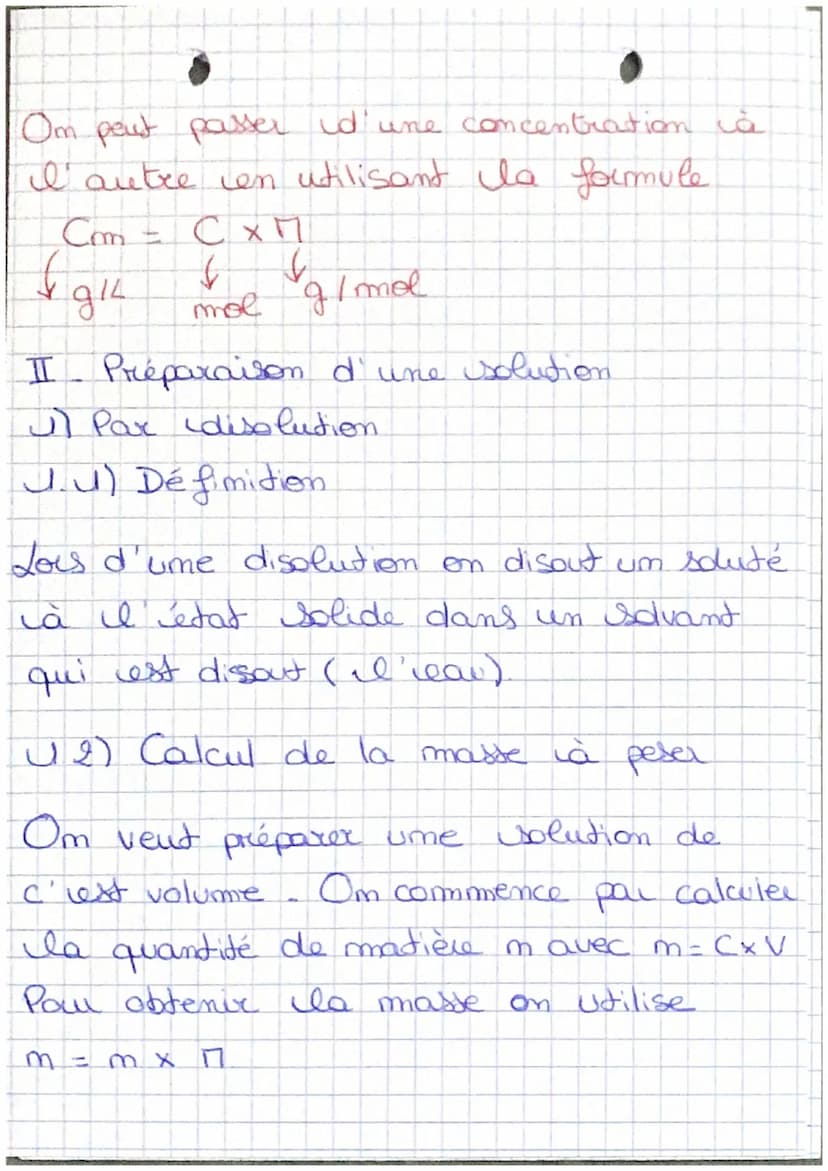 On peut passer d'une concentration à
l'autre en utilisant la formule
Cm = C x M
↓ g/L ↓ mol ↓ g/mol
II - Préparaison d'une solution
1) Par disolution
1.1) Définition
Lors d'une disolution on disout un soluté
à l'état solide dans un solvant
qui est disout (l'eau).
1 2) Calcul de la masse à peser
On veut préparer une solution de
c'est volume. On commence par calculer
la quantité de matière n avec n = C x V
Pour obtenir la masse on utilise
m = n x M